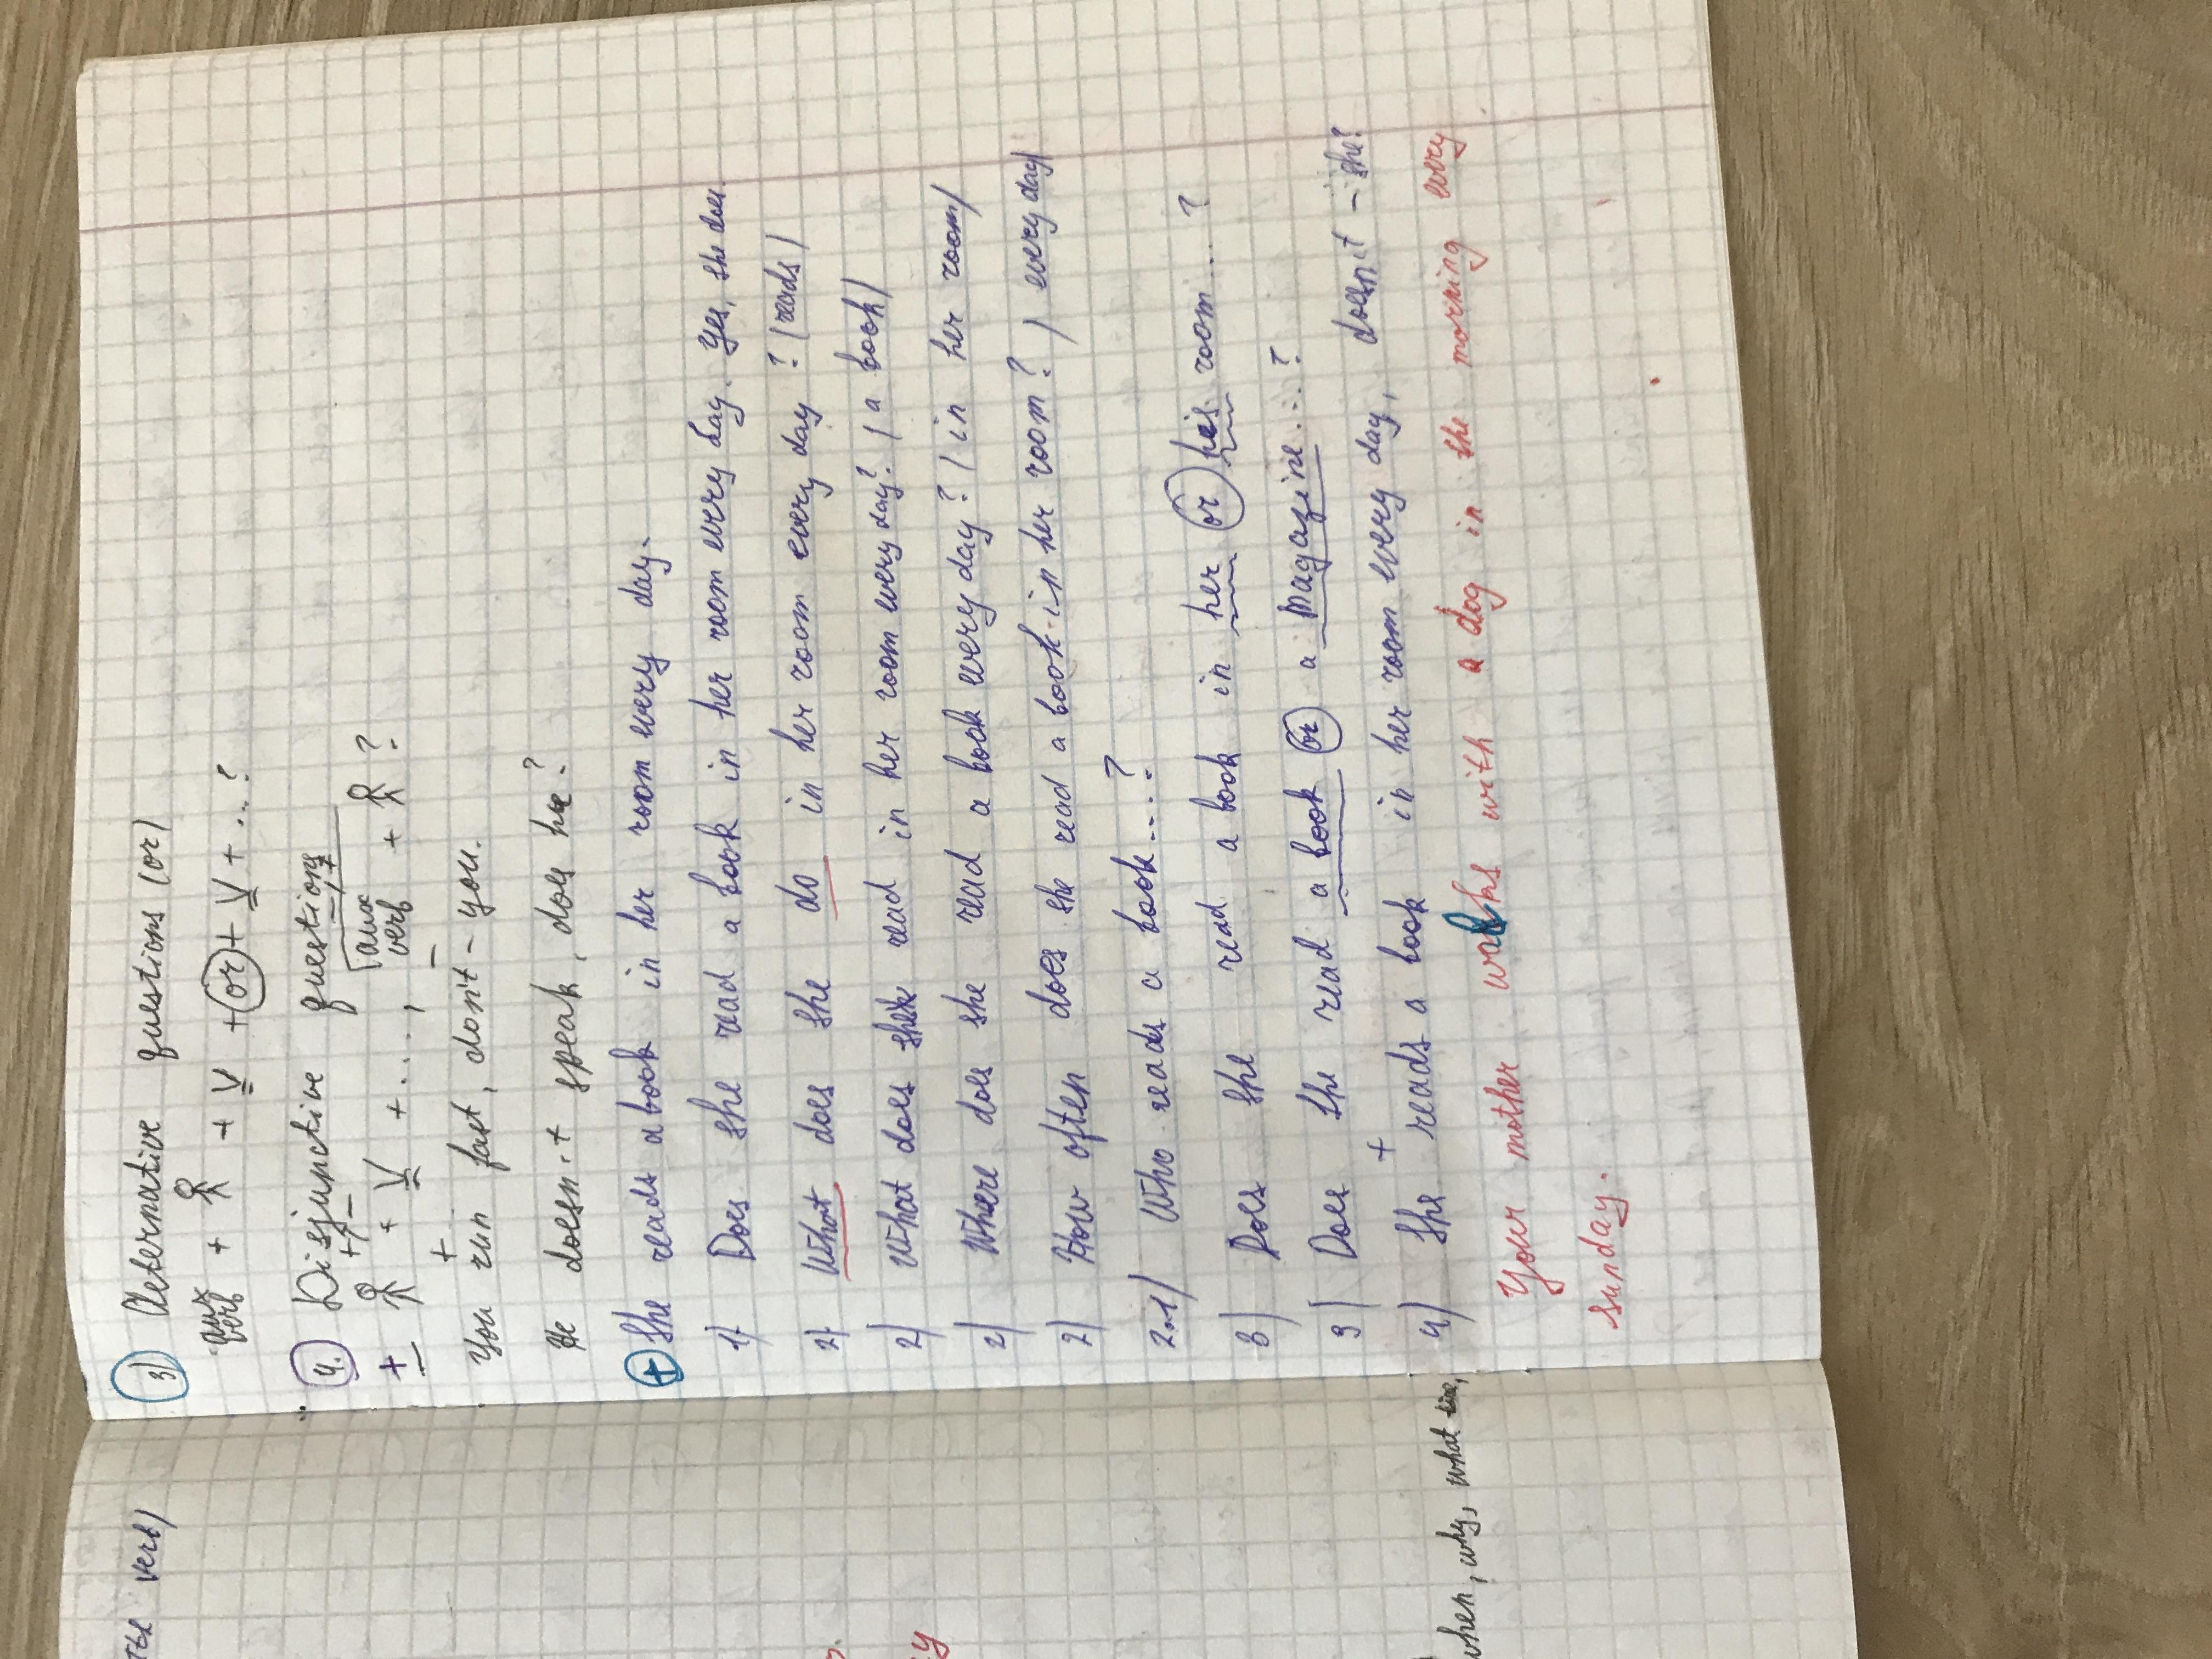 3) Alternative questions (or)
aux verb + + V + or + V + ...?
4. Disjunctive questions
+ - - +
+ V + ..., aux verb + ?
You run fast, don't - you.
He doesn't speak, does he?
+ She reads a book in her room every day.
1) Does she read a book in her room every day. Yes, she does.
2) What does she do in her room every day? (reads)
2) What does she read in her room every day? (a book)
2) Where does she read a book every day? (in her room)
2) How often does she read a book in her room? (every day)
2.1) Who reads a book...?
3) Does she read a book in her or his room...?
3) Does she read a book or a magazine...?
4) She reads a book in her room every day, doesn't - she?
Your mother walks with a dog in the morning every
sunday.
verb)
when, why, what